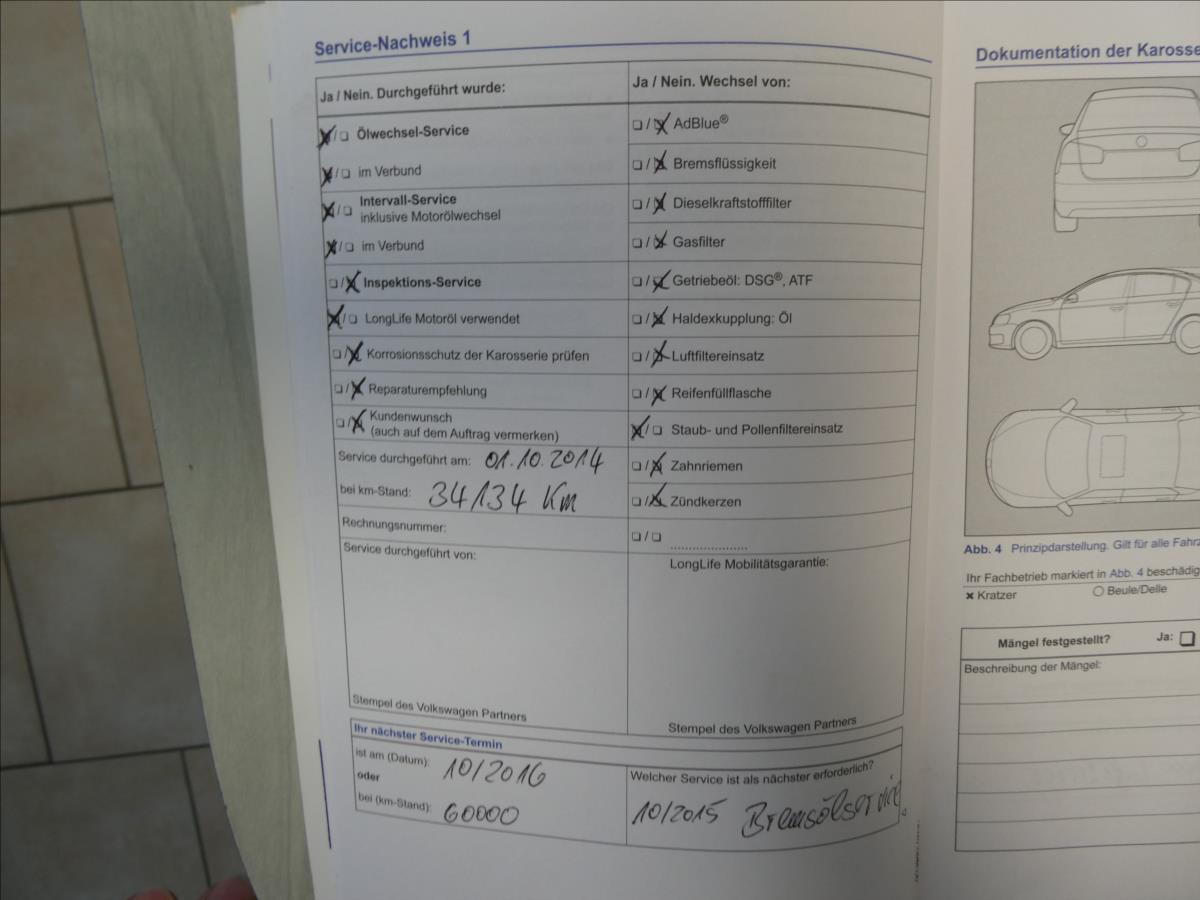 Service-Nachweis 1
Ja / Nein. Durchgeführt wurde:
Ölwechsel-Service
im Verbund
Intervall-Service
inklusive Motorölwechsel
im Verbund
Inspektions-Service
LongLife Motoröl verwendet
Korrosionsschutz der Karosserie prüfen
Reparaturempfehlung
Kundenwunsch
(auch auf dem Auftrag vermerken)
Service durchgeführt am: 01.10.2014
bei km-Stand: 34134 Km
Rechnungsnummer:
Service durchgeführt von:
Stempel des Volkswagen Partners
Ja / Nein. Wechsel von:
AdBlue®
Bremsflüssigkeit
Dieselkraftstofffilter
Gasfilter
Getriebeöl: DSG®, ATF
Haldexkupplung: Öl
Luftfiltereinsatz
Reifenfüllflasche
Staub- und Pollenfiltereinsatz
Zahnriemen
Zündkerzen
LongLife Mobilitätsgarantie:
Stempel des Volkswagen Partners
Ihr nächster Service-Termin
ist am (Datum): 10/2016
oder
bei (km-Stand): 60000
Welcher Service ist als nächster erforderlich?
10/2015 Bremsölservice
Dokumentation der Karosse
Abb. 4 Prinzipdarstellung. Gilt für alle Fahrz
Ihr Fachbetrieb markiert in Abb. 4 beschädig
Kratzer
Beule/Delle
Mängel festgestellt? Ja:
Beschreibung der Mängel: